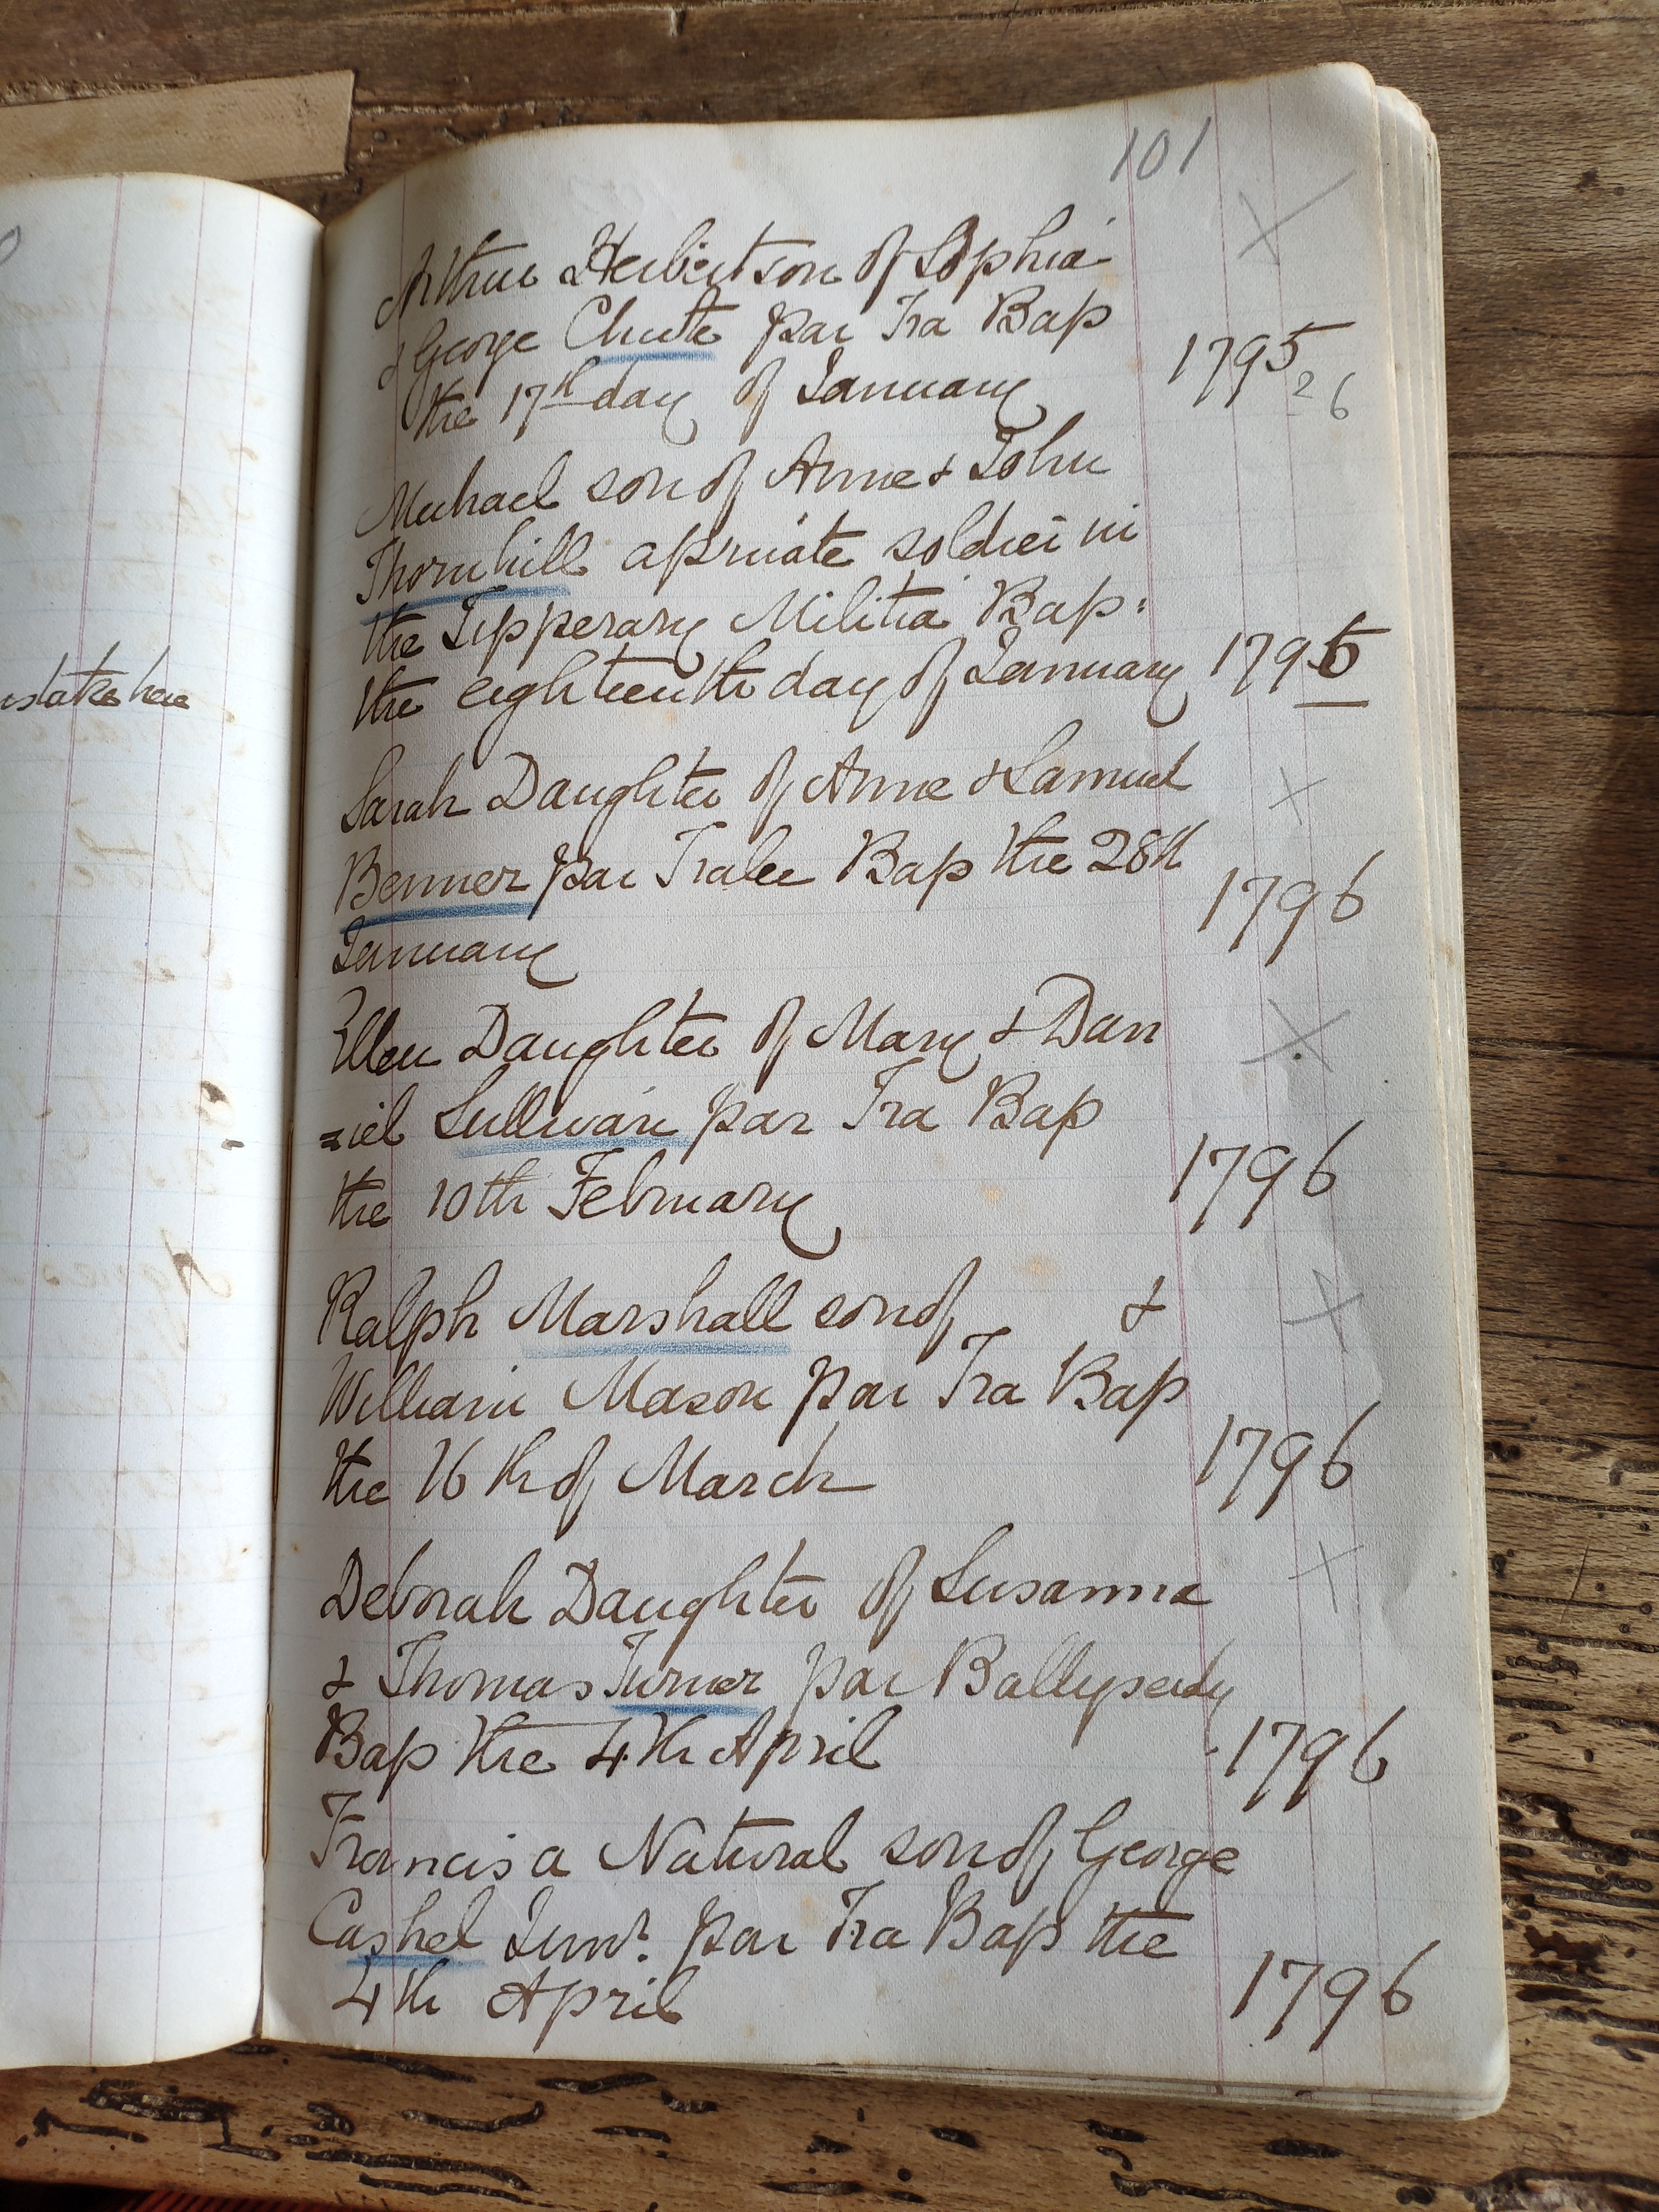 101
Arthur Herbert son of Sophia
& George Chute par Tra Bap
the 17th day of January 1795
? 6
Michael son of Anne & John
Thornhill a private soldier in
the Tipperary Militia Bap:
the eighteenth day of January 1796
Sarah Daughter of Anne & Samuel
Benner par Tralee Bap the 28th
January 1796
Ellen Daughter of Mary & Dan
=iel Sullivan par Tra Bap
the 10th February 1796
Ralph Marshall son of &
William Mason par Tra Bap
the 16th of March 1796
Deborah Daughter of Susanna
& Thomas Turner par Ballyseedy
Bap the 4th April 1796
Francis a Natural son of George
Cashel Junr. par Tra Bap the
4th April 1796
istake here